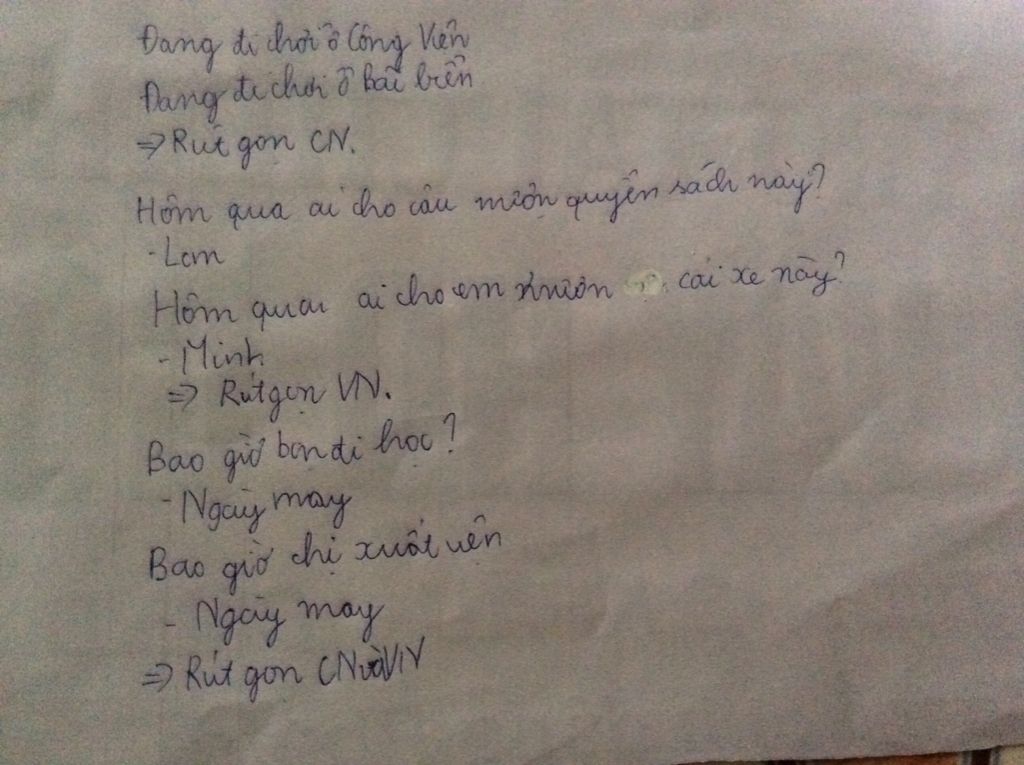 Đang đi chơi ở Công Viên
Đang đi chơi ở bãi biển
=> Rút gọn CN.
Hôm qua ai cho cậu mượn quyển sách này?
- Lan
Hôm qua ai cho em mượn cái xe này?
- Minh
=> Rút gọn VN.
Bao giờ bạn đi học?
- Ngày may
Bao giờ chị xuất viện
- Ngày may
=> Rút gọn CN và VN